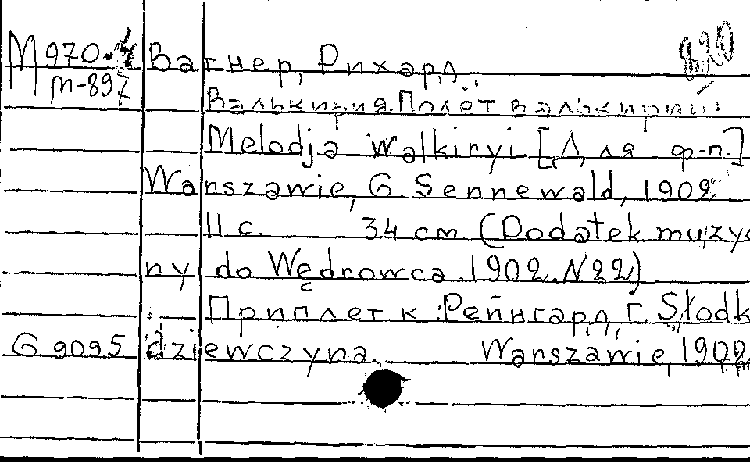 М970-4 Вагнер, Рихард. 820
m-897
Валькирия. Полёт валькирий
Melodja Walkiryi [Для ф-п.]
Warszawie, G Sennewald, 1902
11 с. 34 cm (Dodatek muzy
ny do Wędrowca. 1902. N22)
Приплет к: Рейнгард, Г. Słodk
G 9095 dziewczyna. Warszawie, 1902